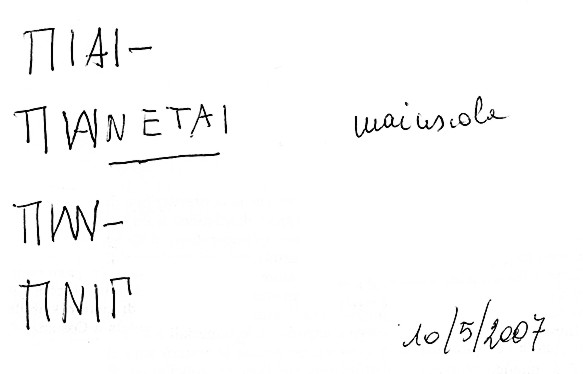 ΠΙΑΙ–
ΠΙΑΙΝΕΤΑΙ maiuscola
ΠΝΙΓ
10/5/2007